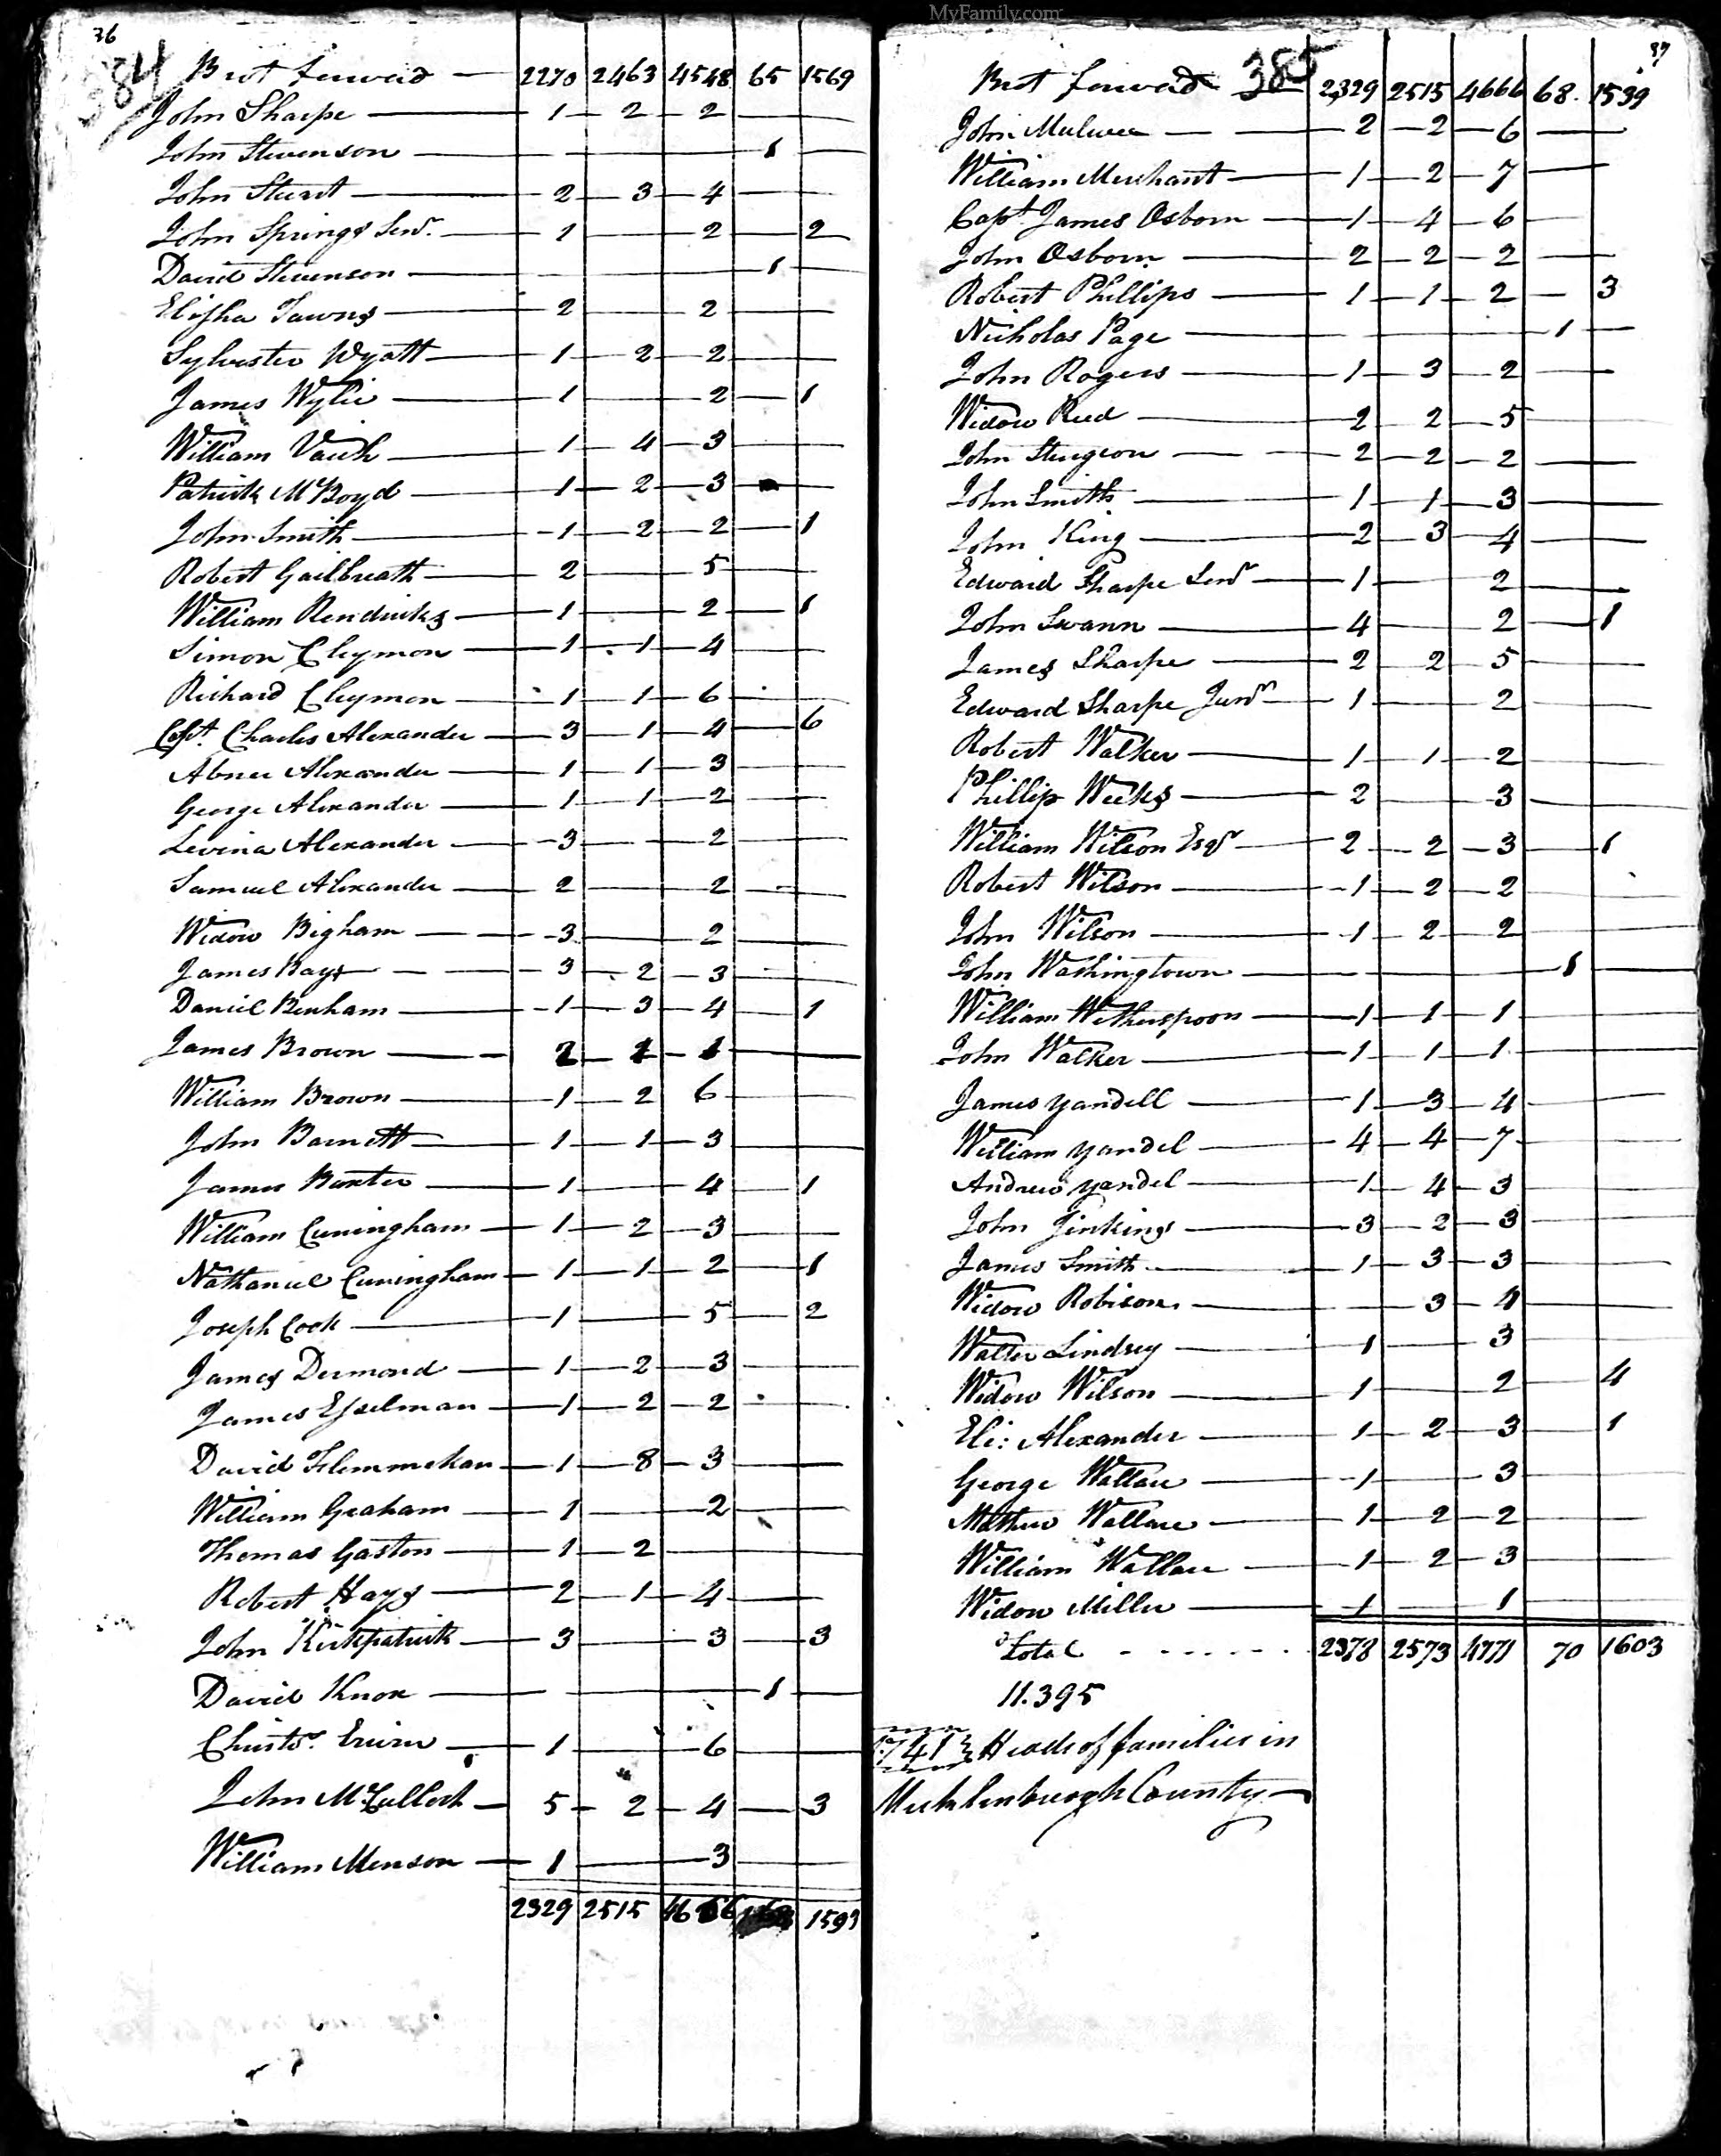 MyFamily.com
36
384 Brot forward — 2270 2463 4548 65 1569
John Sharpe — 1 — 2 — 2 —
John Stevenson — 1 —
John Stuart — 2 — 3 — 4 —
John Springs Senr. — 1 — 2 — 2
David Stevenson — 1 —
Elisha Tawns — 2 — 2 —
Sylvester Wyatt — 1 — 2 — 2 —
James Wylie — 1 — 2 — 1
William Vauh — 1 — 4 — 3 —
Patrick McBoyd — 1 — 2 — 3 —
John Smith — 1 — 2 — 2 — 1
Robert Gailbreath — 2 — 5 —
William Kendricks — 1 — 2 — 1
Simon Cleymon — 1 — 1 — 4 —
Richard Cleymon — 1 — 1 — 6 —
Capt. Charles Alexander — 3 — 1 — 4 — 6
Abner Alexander — 1 — 1 — 3 —
George Alexander — 1 — 1 — 2 —
Levina Alexander — 3 — 2 —
Samuel Alexander — 2 — 2 —
Widow Bigham — 3 — 2 —
James Bays — 3 — 2 — 3 —
Daniel Benham — 1 — 3 — 4 — 1
James Brown — 2 — 1 — 1 —
William Brown — 1 — 2 6 —
John Barnett — 1 — 1 — 3 —
James Baxter — 1 — 4 — 1
William Cuningham — 1 — 2 — 3 —
Nathaniel Cuningham — 1 — 1 — 2 — 1
Joseph Cook — 1 — 5 — 2
James Dermond — 1 — 2 — 3 —
James Esselman — 1 — 2 — 2 —
David Flemmekan — 1 — 8 — 3 —
William Graham — 1 — 2 —
Thomas Gaston — 1 — 2 —
Robert Hays — 2 — 1 — 4 —
John Kirkpatrick — 3 — 3 — 3
David Knox — 1 —
Christr. Erwin — 1 — 6 —
John McCulloch — 5 — 2 — 4 — 3
William Menson — 1 — 3 —
2329 2515 4666 1599
37
Brot forward 385 2329 2515 4666 68. 1599
John Mulwee — 2 — 2 — 6 —
William Merchant — 1 — 2 — 7 —
Capt. James Osborn — 1 — 4 — 6 —
John Osborn — 2 — 2 — 2 —
Robert Phillips — 1 — 1 — 2 — 3
Nicholas Page — 1 —
John Rogers — 1 — 3 — 2 —
Widow Reed — 2 — 2 — 5 —
John Sturgeon — 2 — 2 — 2 —
John Smith — 1 — 1 — 3 —
John King — 2 — 3 — 4 —
Edward Sharpe Senr — 1 — 2 —
John Swann — 4 — 2 — 1
James Sharpe — 2 — 2 — 5 —
Edward Sharpe Junr — 1 — 2 —
Robert Walker — 1 — 1 — 2 —
Phillip Weeks — 2 — 3 —
William Wilson Esqr — 2 — 2 — 3 — 1
Robert Wilson — 1 — 2 — 2
John Wilson — 1 — 2 — 2 —
John Washingtown — 1 —
William Witherspoon — 1 — 1 — 1
John Walker — 1 — 1 — 1
James Yandell — 1 — 3 — 4 —
William Yandel — 4 — 4 — 7 —
Andrew Yandel — 1 — 4 — 3 —
John Jinkins — 3 — 2 — 3 —
James Smith — 1 — 3 — 3 —
Widow Robison — 3 — 4 —
Walter Lindsey — 1 — 3 —
Widow Wilson — 1 — 2 — 4
Eli: Alexander — 1 — 2 — 3 — 1
George Wallace — 1 — 3 —
Mathew Wallace — 1 — 2 — 2 —
William Wallace — 1 — 2 — 3 —
Widow Miller — 1 — 1 —
Total - - - - - - - 2378 2573 4771 70 1603
11.395
1741 Heads of families in
Mecklenburgh County —